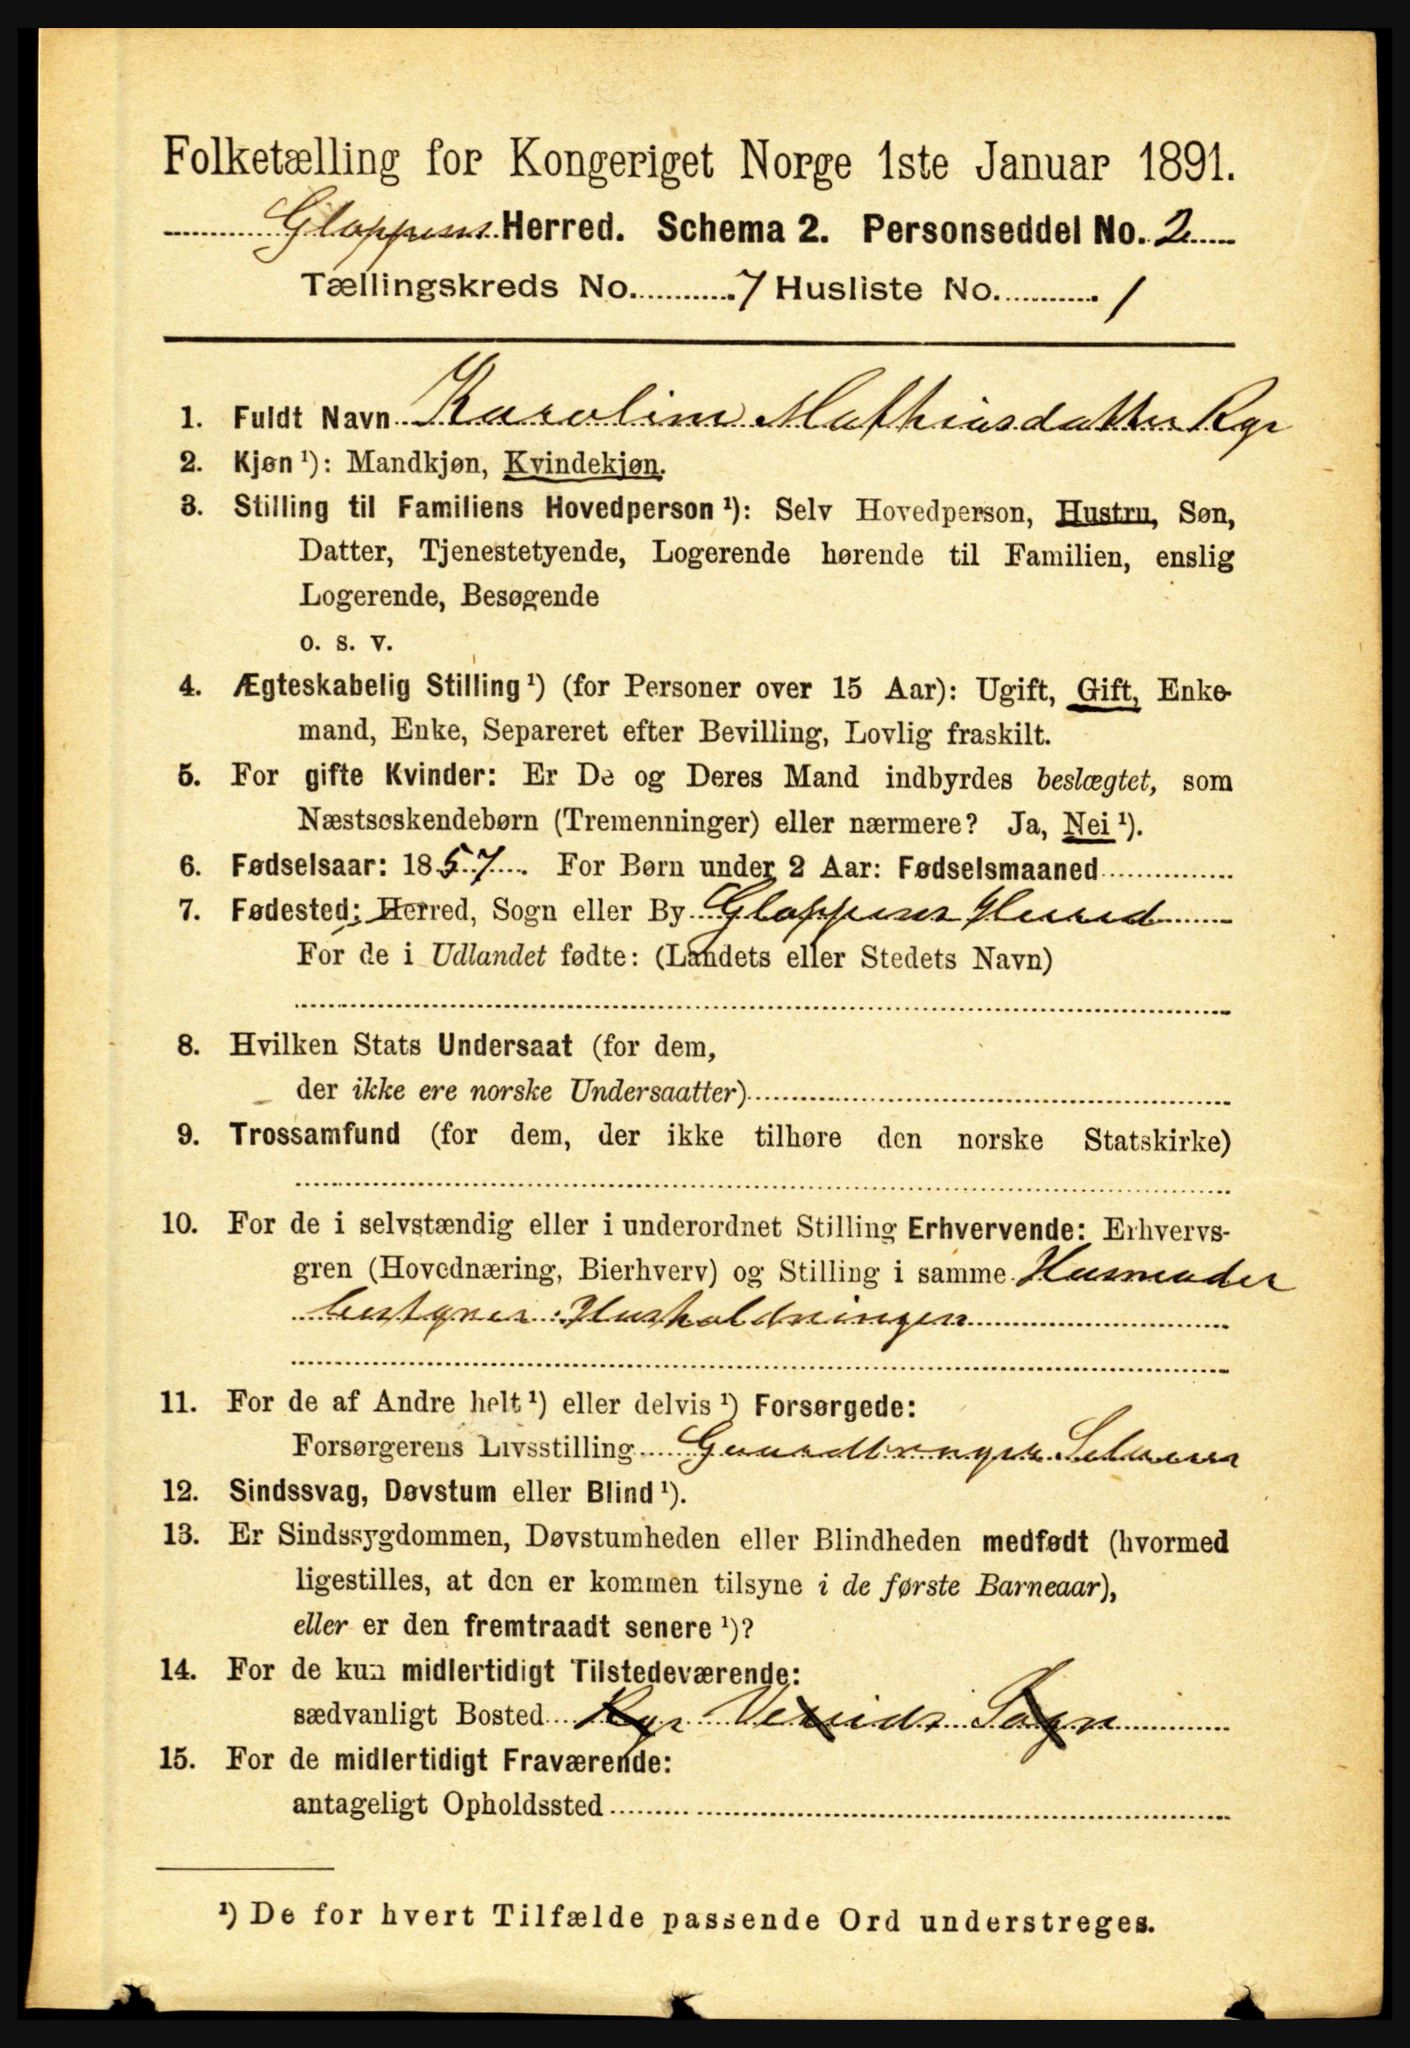 Folketælling for Kongeriget Norge 1ste Januar 1891.
Gloppens Herred. Schema 2. Personseddel No. 2
Tællingskreds No. 7 Husliste No. 1
1. Fuldt Navn Karolina Mathiasdatter Ryr
2. Kjøn ¹): Mandkjøn, Kvindekjøn.
3. Stilling til Familiens Hovedperson ¹): Selv Hovedperson, Hustru, Søn,
Datter, Tjenestetyende, Logerende hørende til Familien, enslig
Logerende, Besøgende
o. s. v.
4. Ægteskabelig Stilling ¹) (for Personer over 15 Aar): Ugift, Gift, Enke-
mand, Enke, Separeret efter Bevilling, Lovlig fraskilt.
5. For gifte Kvinder: Er De og Deres Mand indbyrdes beslægtet, som
Næstsøskendebørn (Tremenninger) eller nærmere? Ja, Nei ¹).
6. Fødselsaar: 1857. For Børn under 2 Aar: Fødselsmaaned
7. Fødested: Herred, Sogn eller By Gloppens Herred
For de i Udlandet fødte: (Landets eller Stedets Navn)
8. Hvilken Stats Undersaat (for dem,
der ikke ere norske Undersaatter)
9. Trossamfund (for dem, der ikke tilhøre den norske Statskirke)
10. For de i selvstændig eller i underordnet Stilling Erhvervende: Erhvervs-
gren (Hovednæring, Bierhverv) og Stilling i samme Husmoder
bestyrer Husholdningen
11. For de af Andre helt ¹) eller delvis ¹) Forsørgede:
Forsørgerens Livsstilling Gaardbruger Selveier
12. Sindssvag, Døvstum eller Blind ¹).
13. Er Sindssygdommen, Døvstumheden eller Blindheden medfødt (hvormed
ligestilles, at den er kommen tilsyne i de første Barneaar),
eller er den fremtraadt senere ¹)?
14. For de kun midlertidigt Tilstedeværende:
sædvanligt Bosted Ryr Vereids Sogn
15. For de midlertidigt Fraværende:
antageligt Opholdssted
¹) De for hvert Tilfælde passende Ord understreges.